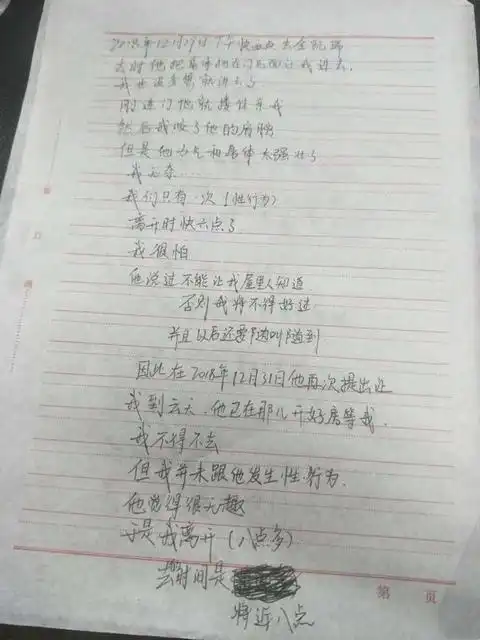 2018年12月29日下午快五点去金凯瑞
去时他把身体挡在门后面让我进去.
我也没多想就进去了
刚进门他就搂住亲我
然后我咬了他的肩膀
但是他力气和身体太强壮了
我无奈……
我们只有一次(性行为)
离开时快六点了
我很怕
他说过不能让我屋里人知道
否则我将不得好过
并且以后还要随叫随到
因此在2018年12月31日他再次提出让
我到云天.他已在那儿开好房等我.
我不得不去
但我并未跟他发生性行为.
他觉得很无趣
于是我离开(八点多)
去时间是
将近八点
第 页